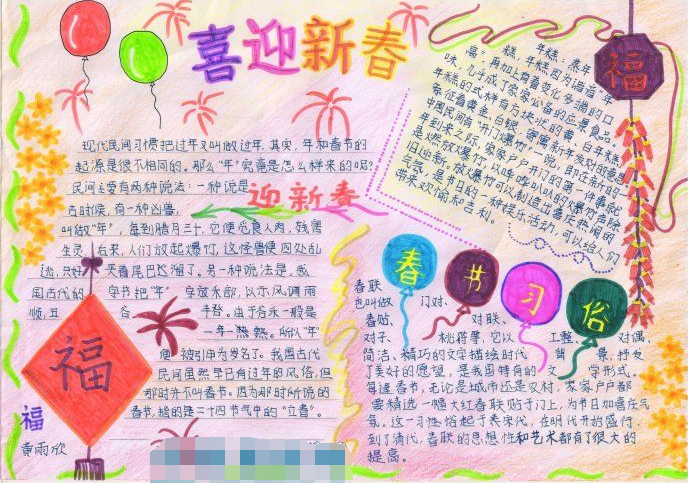 喜迎新春
现代民间习惯把过年又叫做过年.其实,年和春节的
起源是很不相同的。那么"年"究竟是怎么样来的呢?
民间主要有两种说法:一种说是
迎新春
古时候,有一种凶兽,
叫做"年",每到腊月三十,它便危食人肉,残害
生灵,后来,人们放起爆竹,这怪兽便四处乱
逃,只好夹着尾巴逃溜了。另一种说法是,我
国古代的字书把"年"字放禾部,以示风调雨
顺,五谷
一年一熟。所以"年"
便被引申为岁名了。我国古代
民间虽然早已有过年的风俗,但
那时并不叫春节。因为那时所说的
春节,指的是二十四节气中的"立春"。
福
福
黄雨欣
年糕:蒸年
糕,年糕因为谐音"年
高",再加上有着变化多端的口
味,几乎成了家家必备的应景食品。
年糕的式样有方块状的黄、白年糕,
象征着黄金、白银,寄寓新年发财的意思
中国民间有"开门爆竹"一说。即在新的一
年到来之际,家家户户开门的第一件事就
是燃放爆竹,以哔哔叭叭的爆竹声除
旧迎新。放爆竹可以制造出喜庆热闹的
气氛,是节日的一种娱乐活动,可以给人们
带来欢愉和吉利。
福
春节习俗
春联
也叫做门对、
春贴、对联、
对子、桃符等,它以工整、对偶、
简洁、精巧的文字描绘时代背景,抒发
了美好的愿望,是我国特有的文学形式。
每逢春节,无论是城市还是农村,家家户户都
要精选一幅大红春联贴于门上,为节日加喜庆气
氛。这一习俗起于宋代,在明代开始盛行,
到了清代,春联的思想性和艺术都有了很大的
提高。